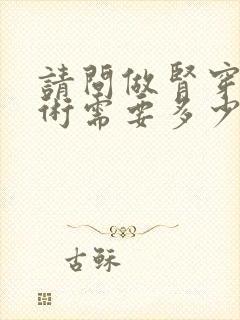 請問做腎穿
術需要多少
古穌